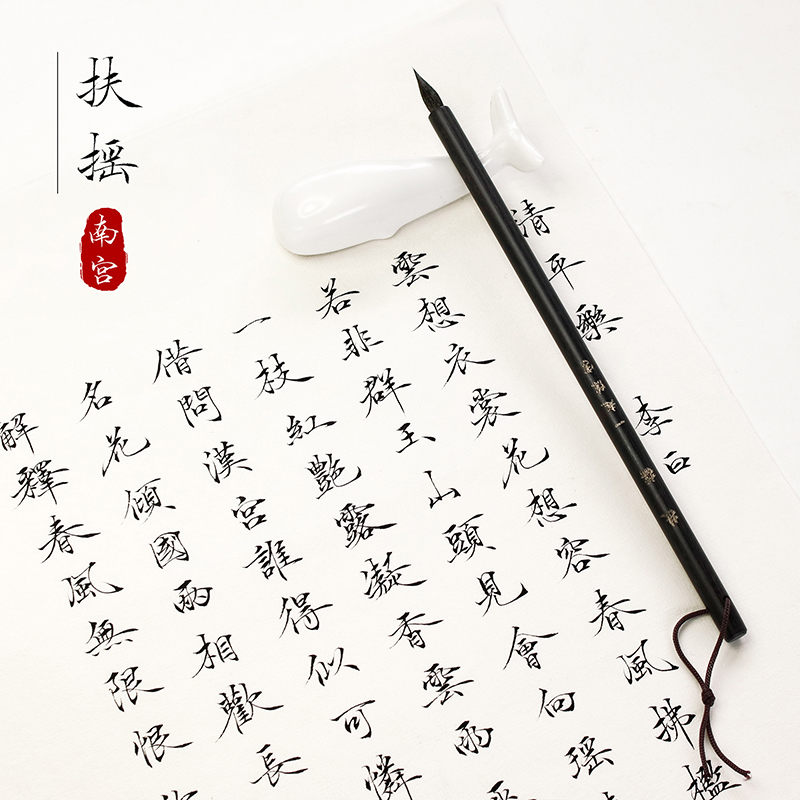 扶摇
南宫
清平樂
李白
雲想衣裳花想容春風拂檻
若非群玉山頭見會向瑶
一枝紅艷露凝香雲雨
借問漢宮誰得似可憐
名花傾國兩相歡長
解釋春風無限恨